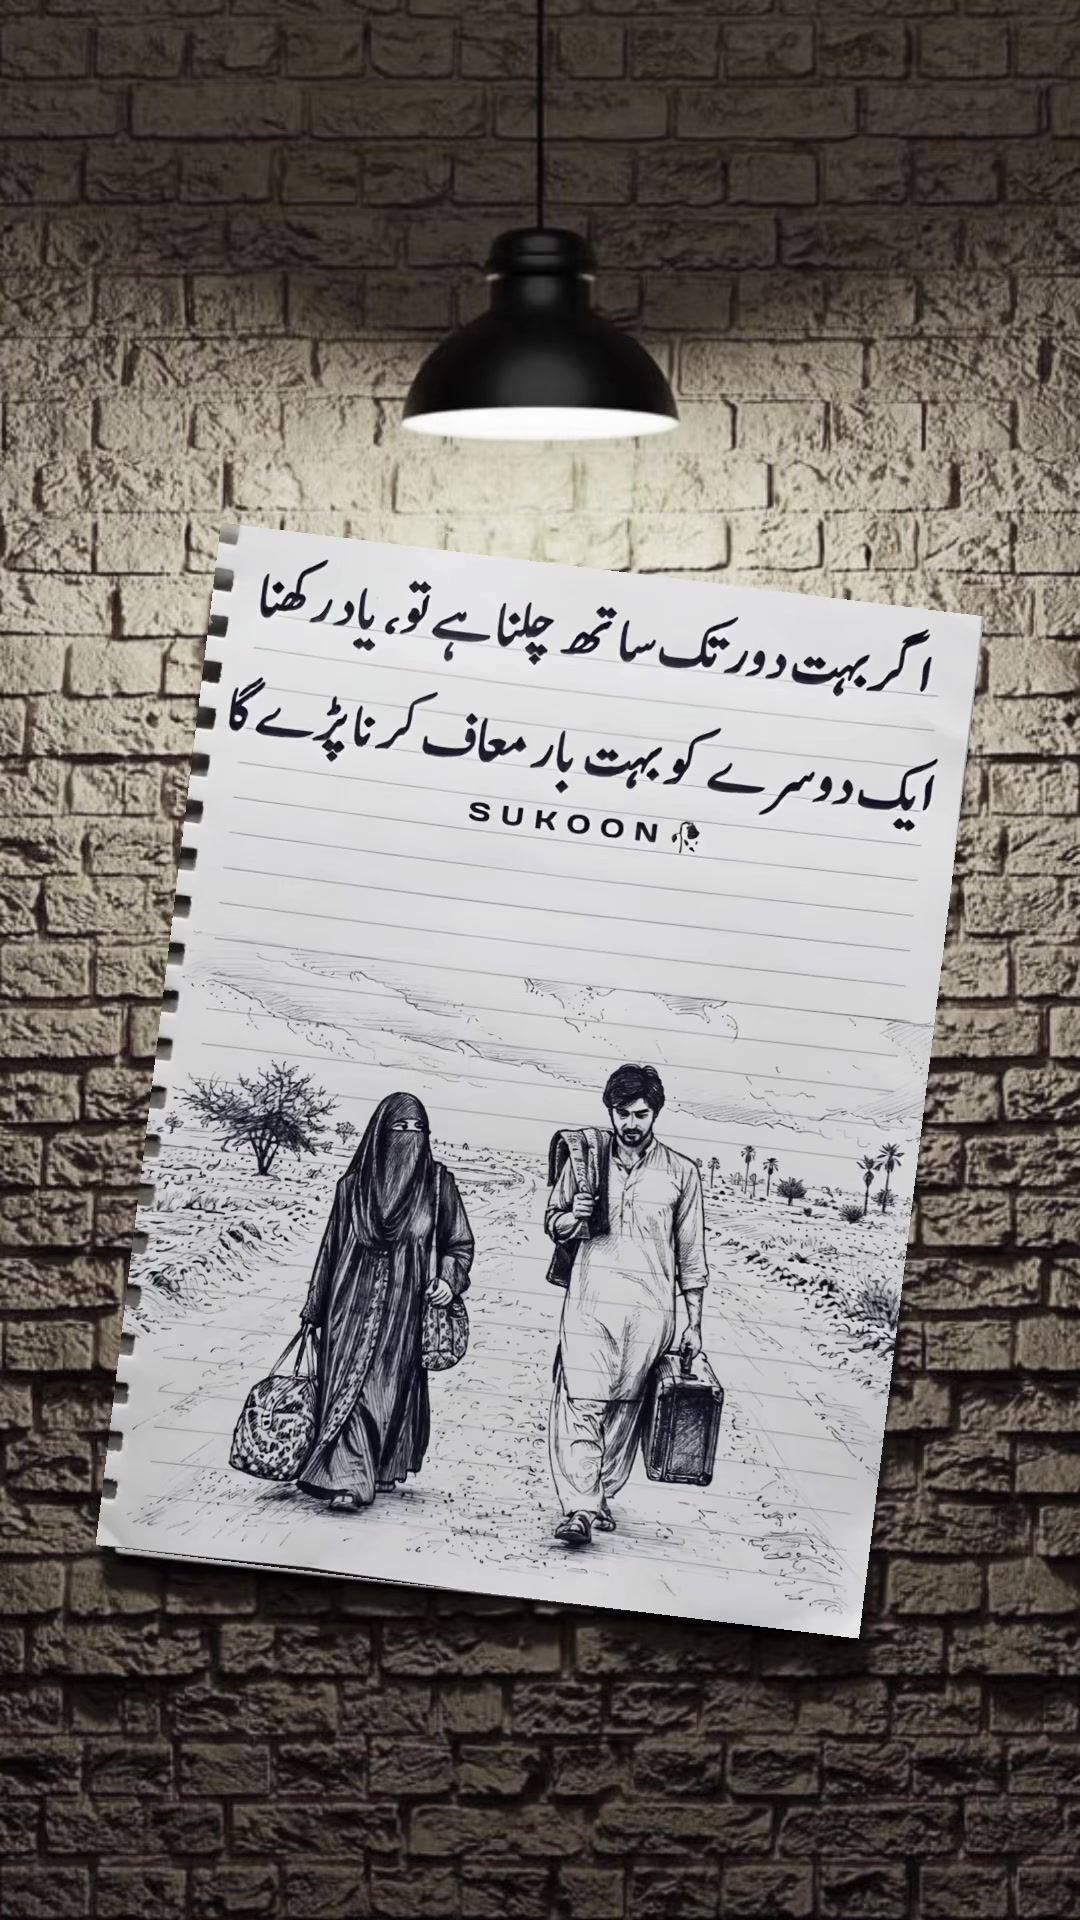 اگر بہت دور تک ساتھ چلنا ہے تو، یاد رکھنا
ایک دوسرے کو بہت بار معاف کرنا پڑے گا
SUKOON